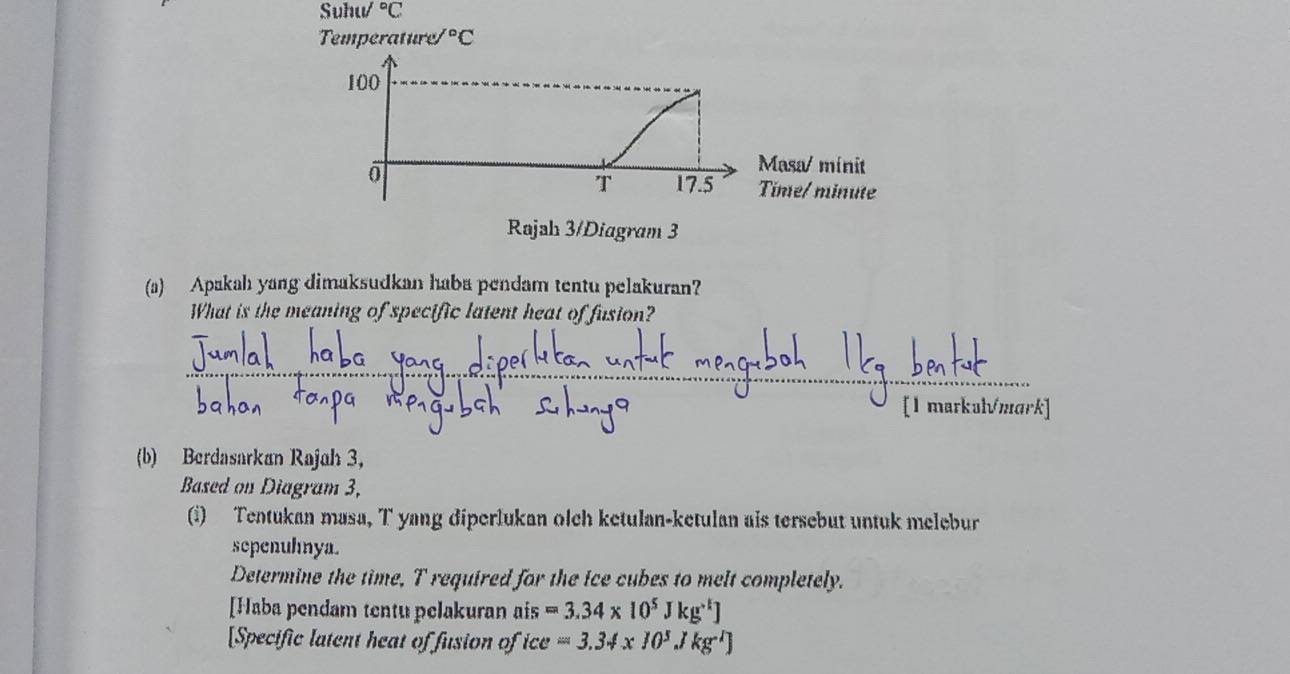 Suhu/ °C
Temperature/ °C
100
0
T
17.5
Masa/ minit
Time/ minute
Rajah 3/Diagram 3
(a) Apakah yang dimaksudkan haba pendam tentu pelakuran?
What is the meaning of specific latent heat of fusion?
Jumlah haba yang diperlukan untuk mengubah 1kg bentuk
bahan tanpa mengubah suhunya
[1 markah/mark]
(b) Berdasarkan Rajah 3,
Based on Diagram 3,
(i) Tentukan masa, T yang diperlukan oleh ketulan-ketulan ais tersebut untuk melebur
sepenuhnya.
Determine the time, T required for the ice cubes to melt completely.
[Haba pendam tentu pelakuran ais = 3.34 x 10⁵ J kg⁻¹]
[Specific latent heat of fusion of ice = 3.34 x 10⁵ J kg⁻¹]